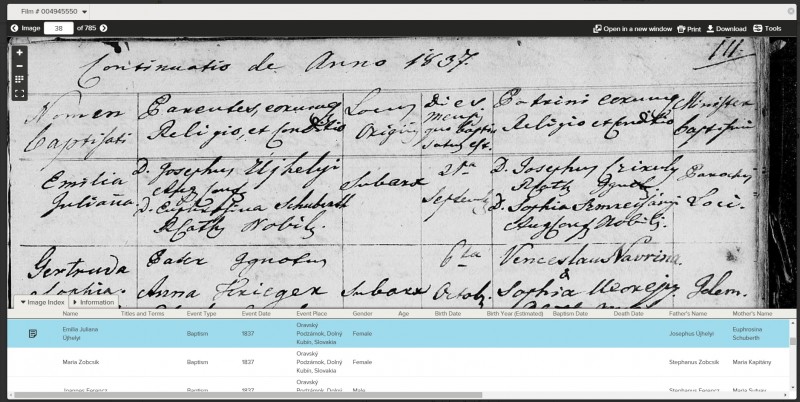 Film # 004945550
Image 38 of 785
Open in a new window Print Download Tools
111.
Continuatio de Anno 1837.
Nomen
Baptisati
Parentes, eorumq
Religio, et Conditio
Locus
Originis
Dies,
mensis
quo baptisatus est.
Patrini eorumq
Religio et Conditio
Minister
Baptismi
Emilia
Juliana
D. Josephus Ujhelyi
D. Euphrosina Schuberth
RCath Nobil.
Subarx
21a
Septemb
D. Josephus
RCath
D. Sophia
Aug Conf Nobil.
Parochus
Loci.
Gertruda
Sophia
Pater Ignotus
Anna Krieger
Subarx
6ta
Octob.
Venceslaus Navrina
&
Sophia
Idem.
Image Index Information
Name Titles and Terms Event Type Event Date Event Place Gender Age Birth Date Birth Year (Estimated) Baptism Date Death Date Father's Name Mother's Name
Emilia Juliana
Újhelyi
Baptism 1837
Oravský
Podzámok, Dolný
Kubín, Slovakia
Female
Josephus Újhelyi
Euphrosina
Schuberth
Maria Zobcsik
Baptism 1837
Oravský
Podzámok, Dolný
Kubín, Slovakia
Female
Stephanus Zobcsik
Maria Kapitány
Joannes Ferencz
Baptism 1837
Oravský
Podzámok, Dolný
Male
Stephanus Ferencz